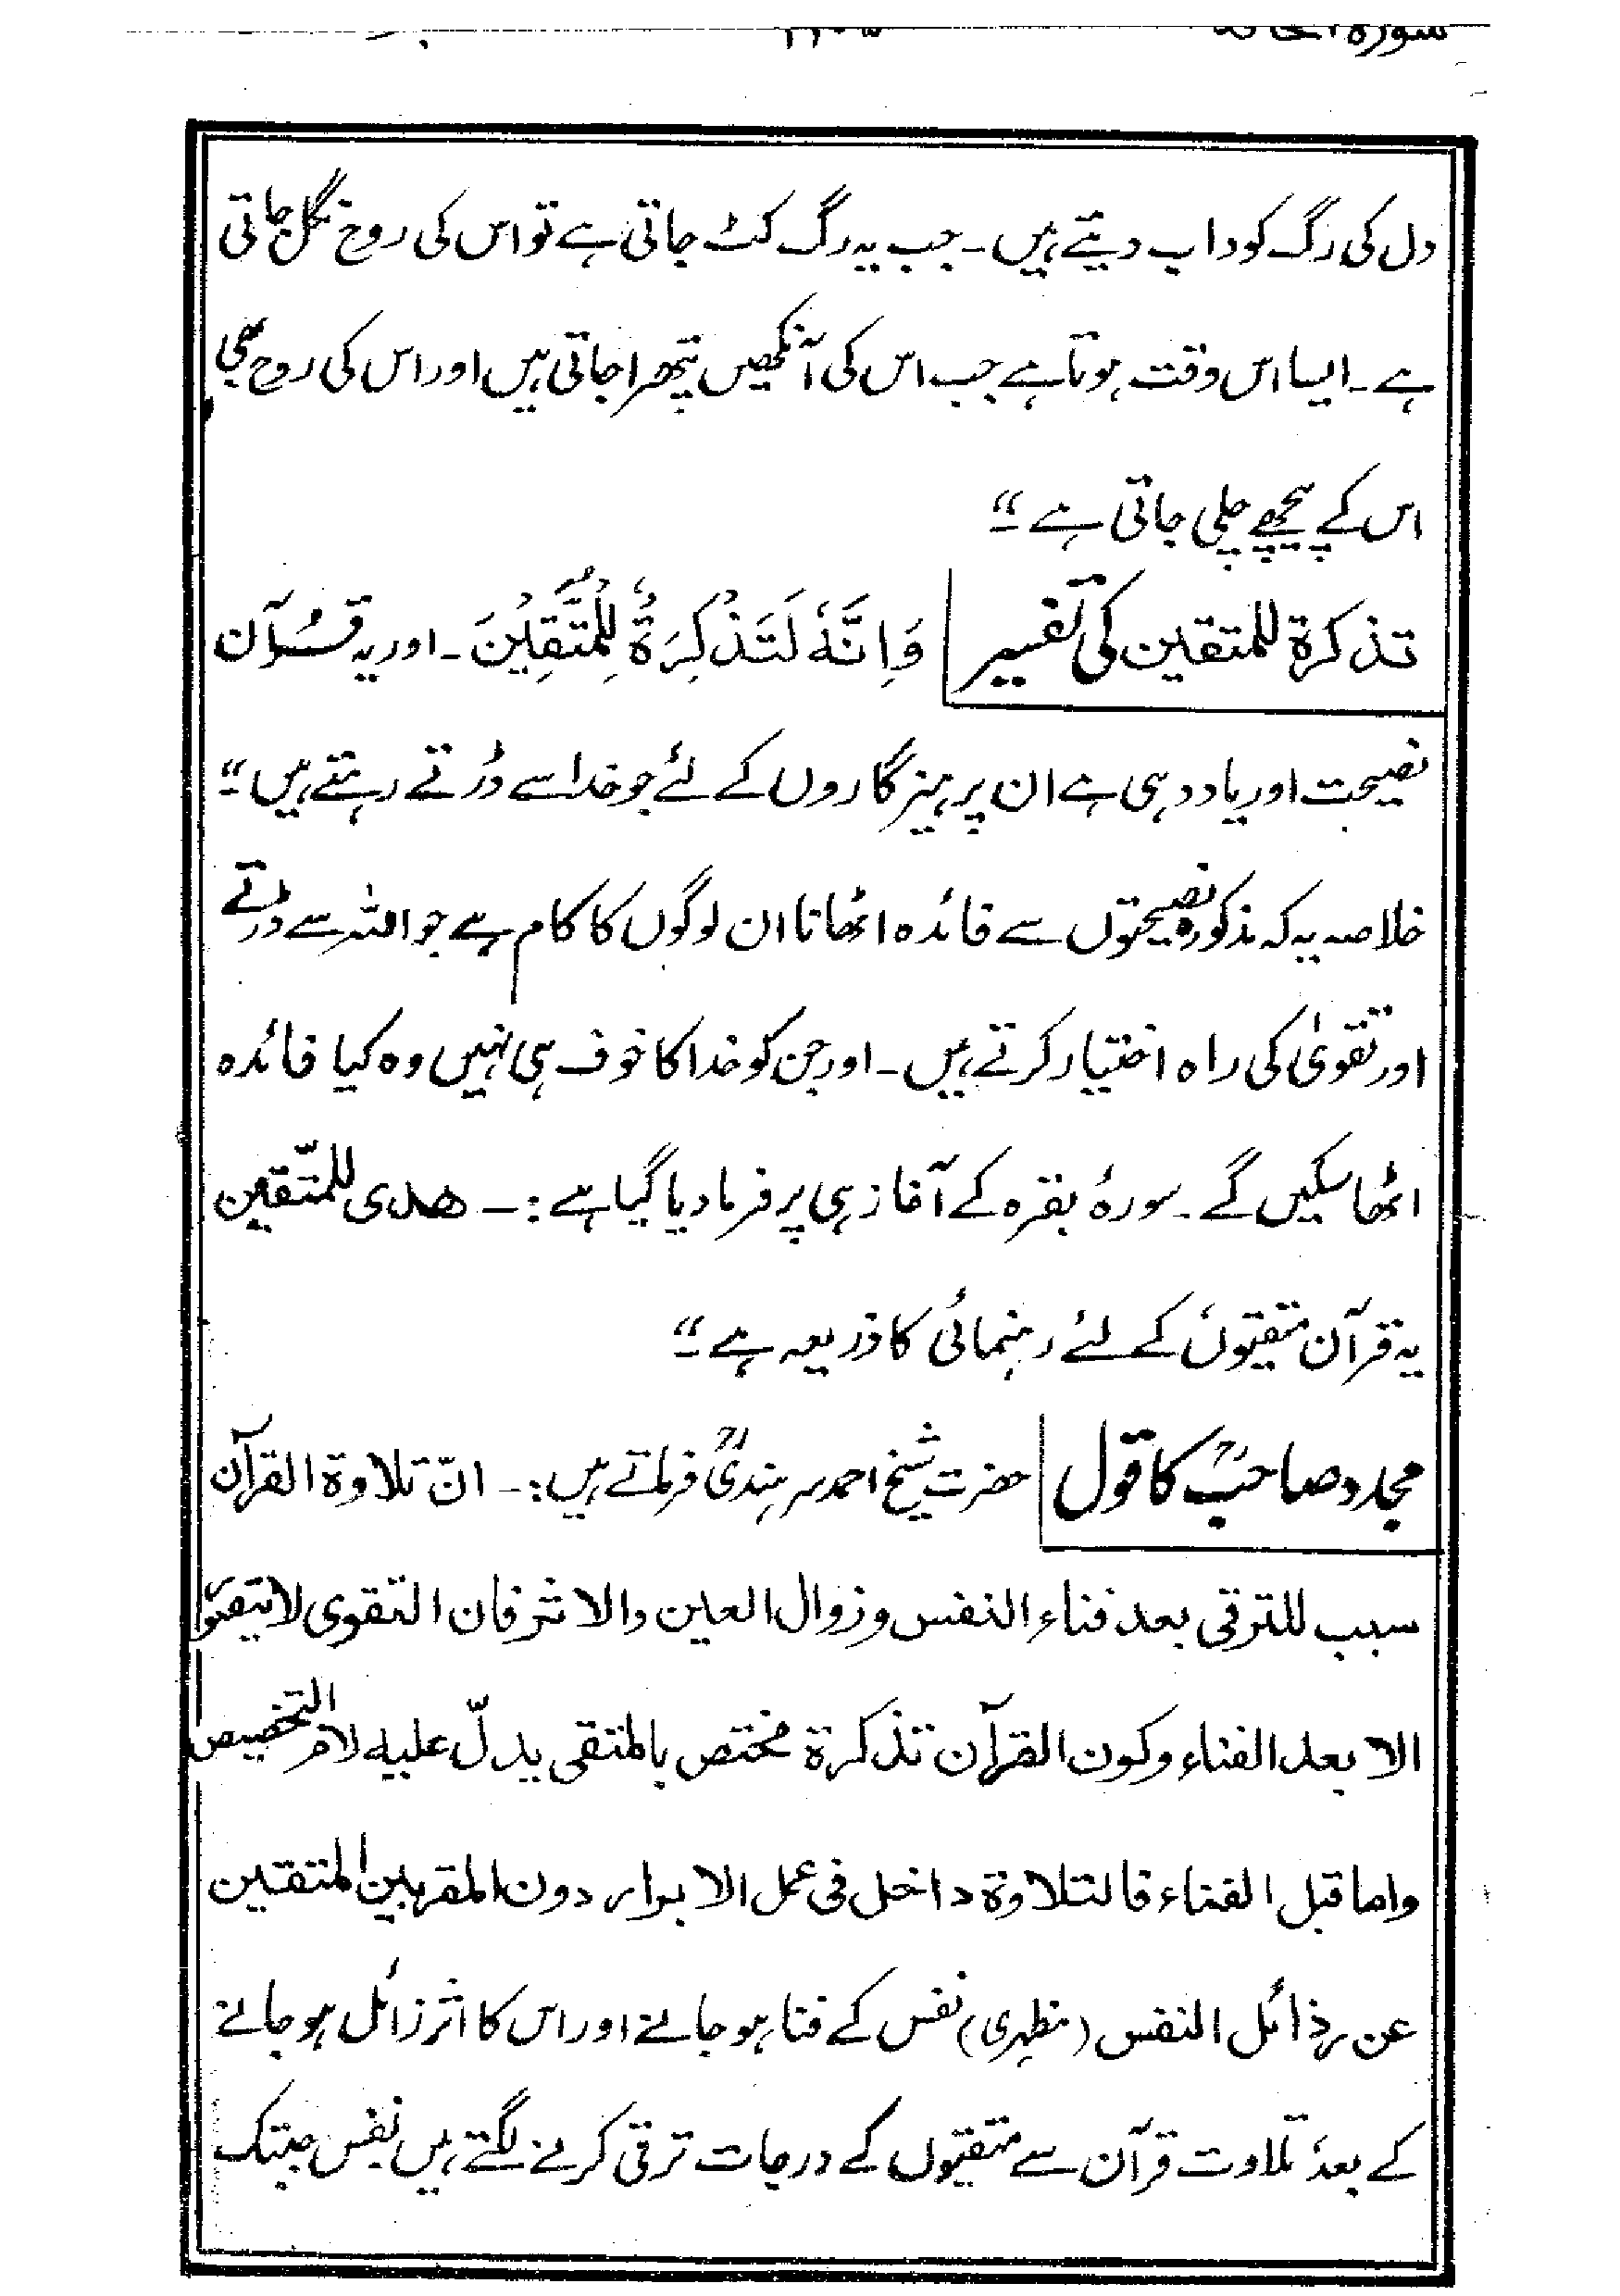 دل کی رگ کو داب دیتے ہیں۔ جب یہ رگ کٹ جاتی ہے تو اس کی روح نکل جاتی
ہے۔ ایسا اس وقت ہوتا ہے جب اس کی آنکھیں پتھرا جاتی ہیں اور اس کی روح بھی
اس کے پیچھے چلی جاتی ہے "
تذکرۃ للمتقین کی تفسیر وَاِنَّہٗ لَتَذْکِرَۃٌ لِّلْمُتَّقِیْنَ۔ اور یہ قرآن
نصیحت اور یاد دہی ہے ان پرہیزگاروں کے لئے جو خدا سے ڈرتے رہتے ہیں "
خلاصہ یہ کہ مذکورہ نصیحتوں سے فائدہ اٹھانا ان لوگوں کا کام ہے جو اللہ سے ڈرتے
اور تقویٰ کی راہ اختیار کرتے ہیں۔ اور جن کو خدا کا خوف ہی نہیں وہ کیا فائدہ
اٹھا سکیں گے۔ سورۂ بقرہ کے آغاز ہی پر فرما دیا گیا ہے :۔ ھدی للمتّقین
یہ قرآن متقیوں کے لئے رہنمائی کا ذریعہ ہے "
مجدد صاحبؒ کا قول حضرت شیخ احمد سرہندیؒ فرماتے ہیں:۔ انّ تلاوۃ القرآن
سبب للترقی بعد فناء النفس وزوال العین والاثر فان التقوی لا یتصوّر
الا بعد الفناء وکون القرآن تذکرۃ مختص بالمتقی یدلّ علیہ لام التخصیص
واما قبل الفناء فالتلاوۃ داخل فی عمل الابرار دون المقربین المتقین
عن رذائل النفس (مظہری) نفس کے فنا ہو جانے اور اس کا اثر زائل ہو جانے
کے بعد تلاوت قرآن سے متقیوں کے درجات ترقی کرنے لگتے ہیں نفس جبتک